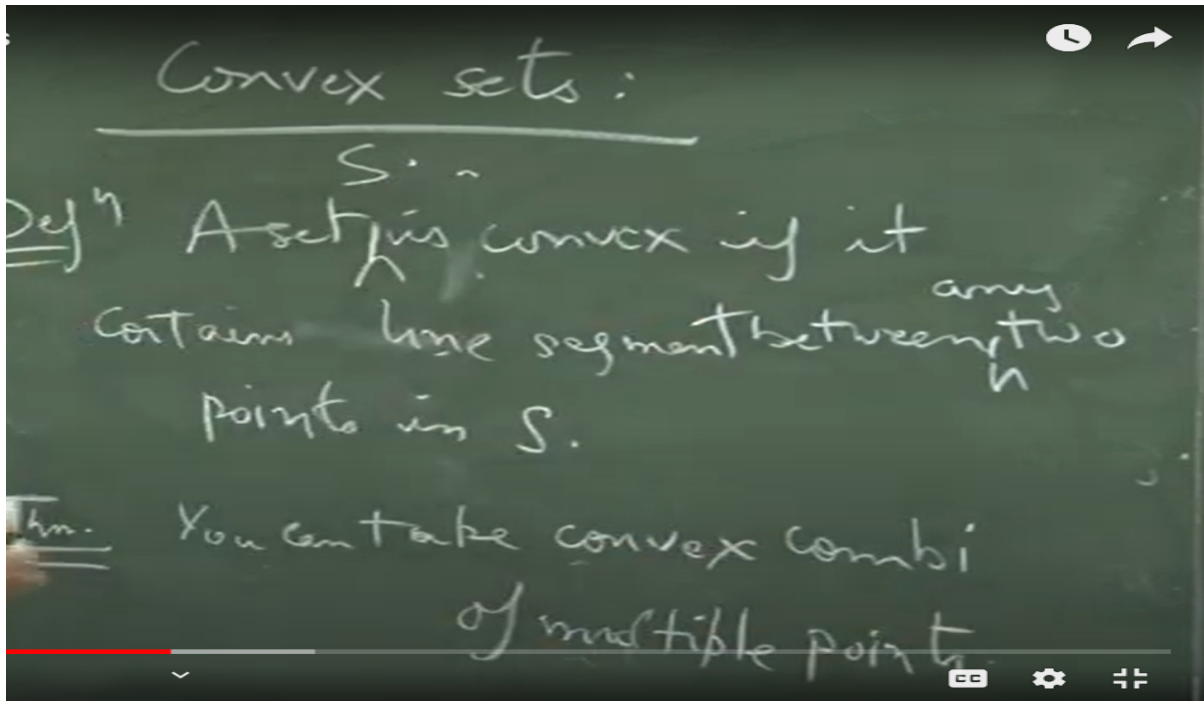 s
Convex sets:
S
Defⁿ A set is convex if it
any
contains line segment between two
points in S.
Thm. You can take convex combi
of multiple points.
CC